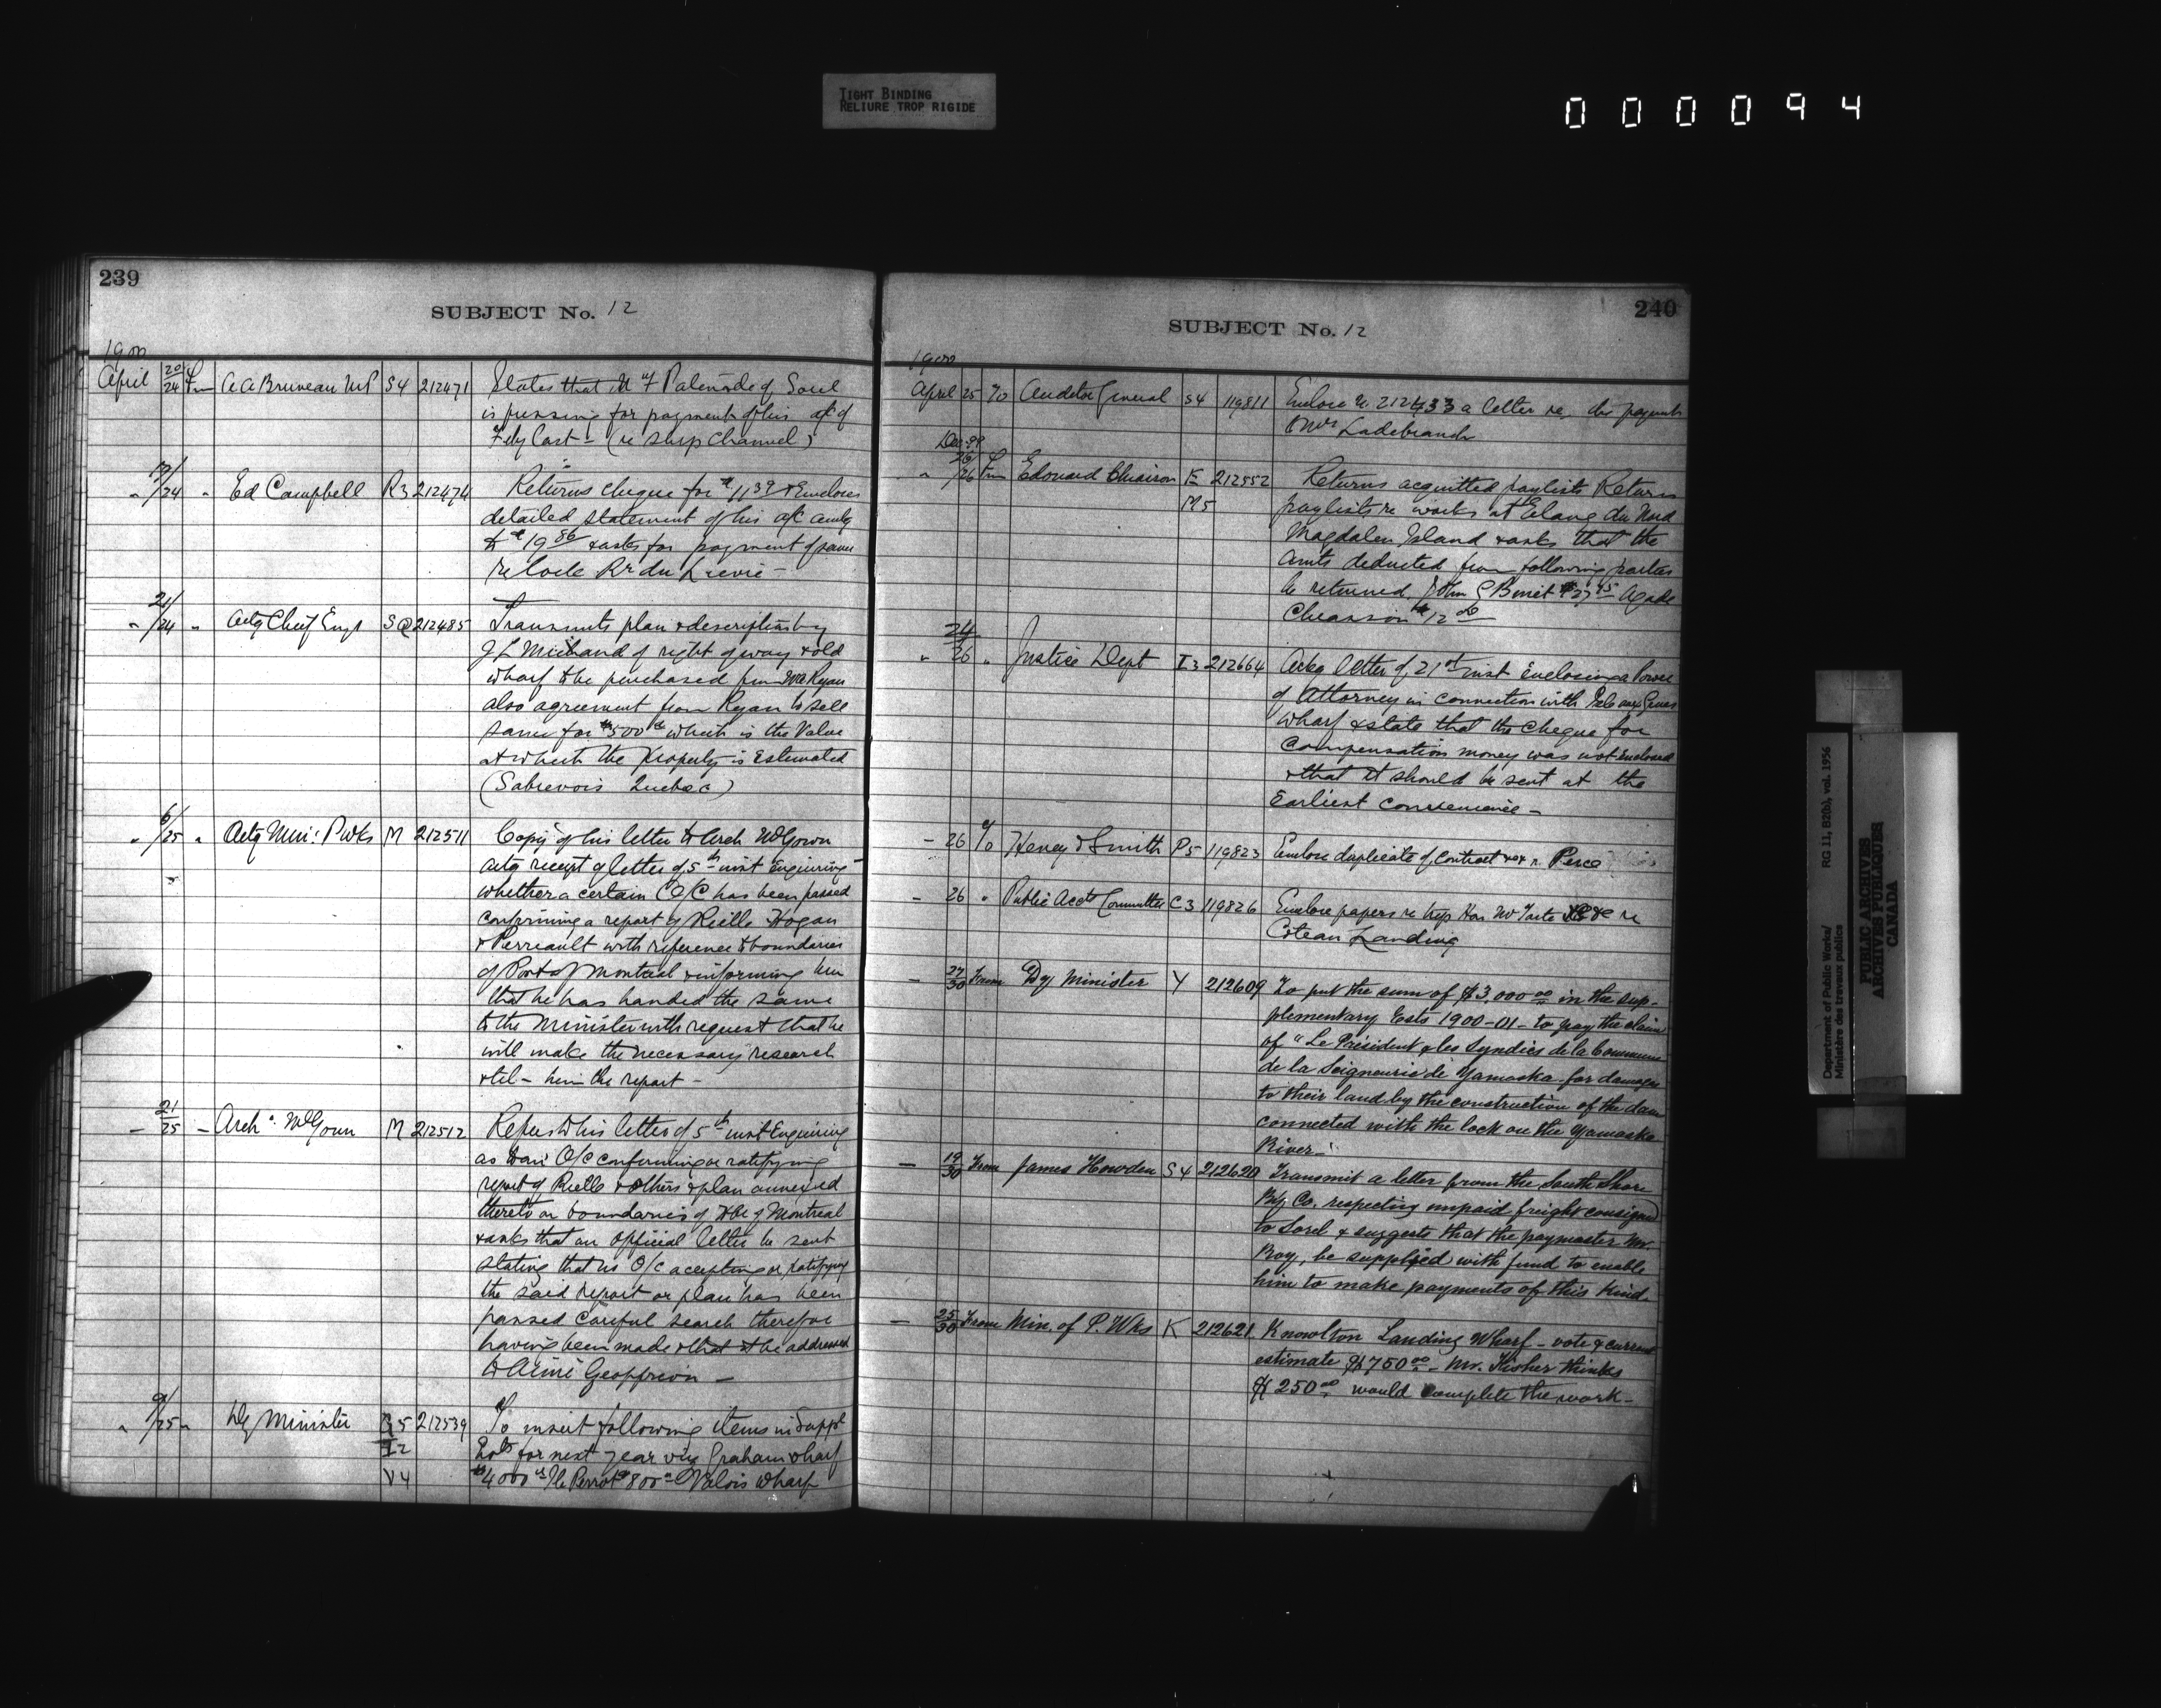 TIGHT BINDING
RELIURE TROP RIGIDE
000094
239
SUBJECT No. 12
1900
April 20/24 Fm A A Bruneau MP S4 212471 States that M of Sorel
is pressing for payment of his a/c of
(re Ship Channel)
" 19/24 " Ed Campbell R3 212474 Returns cheque for $11 39 & Encloses
detailed statement of his a/c amtg
to $19 86 & asks for payment of same
re Lock Rr du Lievre -
" 21/24 " Actg Chief Engr S 212485 Transmits plan & description by
J L Michaud of right of way & old
wharf to be purchased from Ryan
also agreement from Ryan to sell
same for $500 which is the Value
at which the property is Estimated
(Sabrevois Quebec)
" 6/25 " Actg Min: P Wks M 212511 Copy of his letter to Arch McGoun
actg receipt of letter of 5th inst Enquiring
whether a certain O/C has been passed
confirming a report by Rielle Hogan
& Perreault with reference to boundaries
of Port of Montreal & informing him
that he has handed the same
to the Minister with request that he
will make the necessary research
& him the report -
- 21/25 - Archd McGoun M 212512 Refers to his letter of 5th inst Enquiring
as to an O/C confirming or ratifying
report of Rielle & others & plan annexed
thereto on boundaries of Hbr of Montreal
& asks that an official letter be sent
stating that no O/C accepting or ratifying
the said report or plan has been
passed Careful search therefor
having been made & that it be addressed
to Aimé Geoffrion -
" 9/25 " Dy Minister 5 212539 To insert following items in Suppl
I2 Ests for next year viz Graham wharf
V4 $4000 Ile Perrot $800 Valois Wharf
240
SUBJECT No. 12
1900
April 25 To Auditor General S4 119811 Enclose n. 212433 a letter re payment
Dec 99
" 26/26 Fm Edouard Chiasson E 212552 Returns acquitted paylists Return
M5 paylists re works at Etang du Nord
Magdalen Island & asks that the
amts deducted from following parties
be returned, John C Benoit $27 45 Agade
Chiasson $12 00
" 24/26 " Justice Dept I3 212664 Ackg letter of 21st inst Enclosing a Power
of Attorney in connection with Isle aux Grues
Wharf & state that the Cheque for
Compensation money was not enclosed
& that it should be sent at the
Earliest convenience -
- 26 To Heney & Smith P5 119823 Enclose duplicate of Contract re Perce
- 26 " Public Accts Committee C3 119826 Enclose papers re trip Hon Mr Tarte re
Coteau Landing
- 27/30 From Dy Minister Y 212609 To put the sum of $3,000 00 in the sup-
plementary Ests 1900-01 - to pay the claim
of "Le Président & les Syndics de la Commune
de la Seigneurie de Yamaska for damages
to their land by the construction of the dam
connected with the lock on the Yamaska
River -
- 19/30 From James Howden S4 212620 Transmit a letter from the South Shore
Rly Co. respecting unpaid freight consigned
to Sorel & suggests that the paymaster Mr.
Roy, be supplied with fund to enable
him to make payments of this kind.
- 25/30 From Min. of P. Wks K 212621 Knowlton Landing Wharf - vote & current
estimate $750 00 - Mr. Fisher thinks
$250 00 would complete the work -
Department of Public Works/
Ministère des travaux publics
RG 11, B2(b), vol. 1956
PUBLIC ARCHIVES
ARCHIVES PUBLIQUES
CANADA